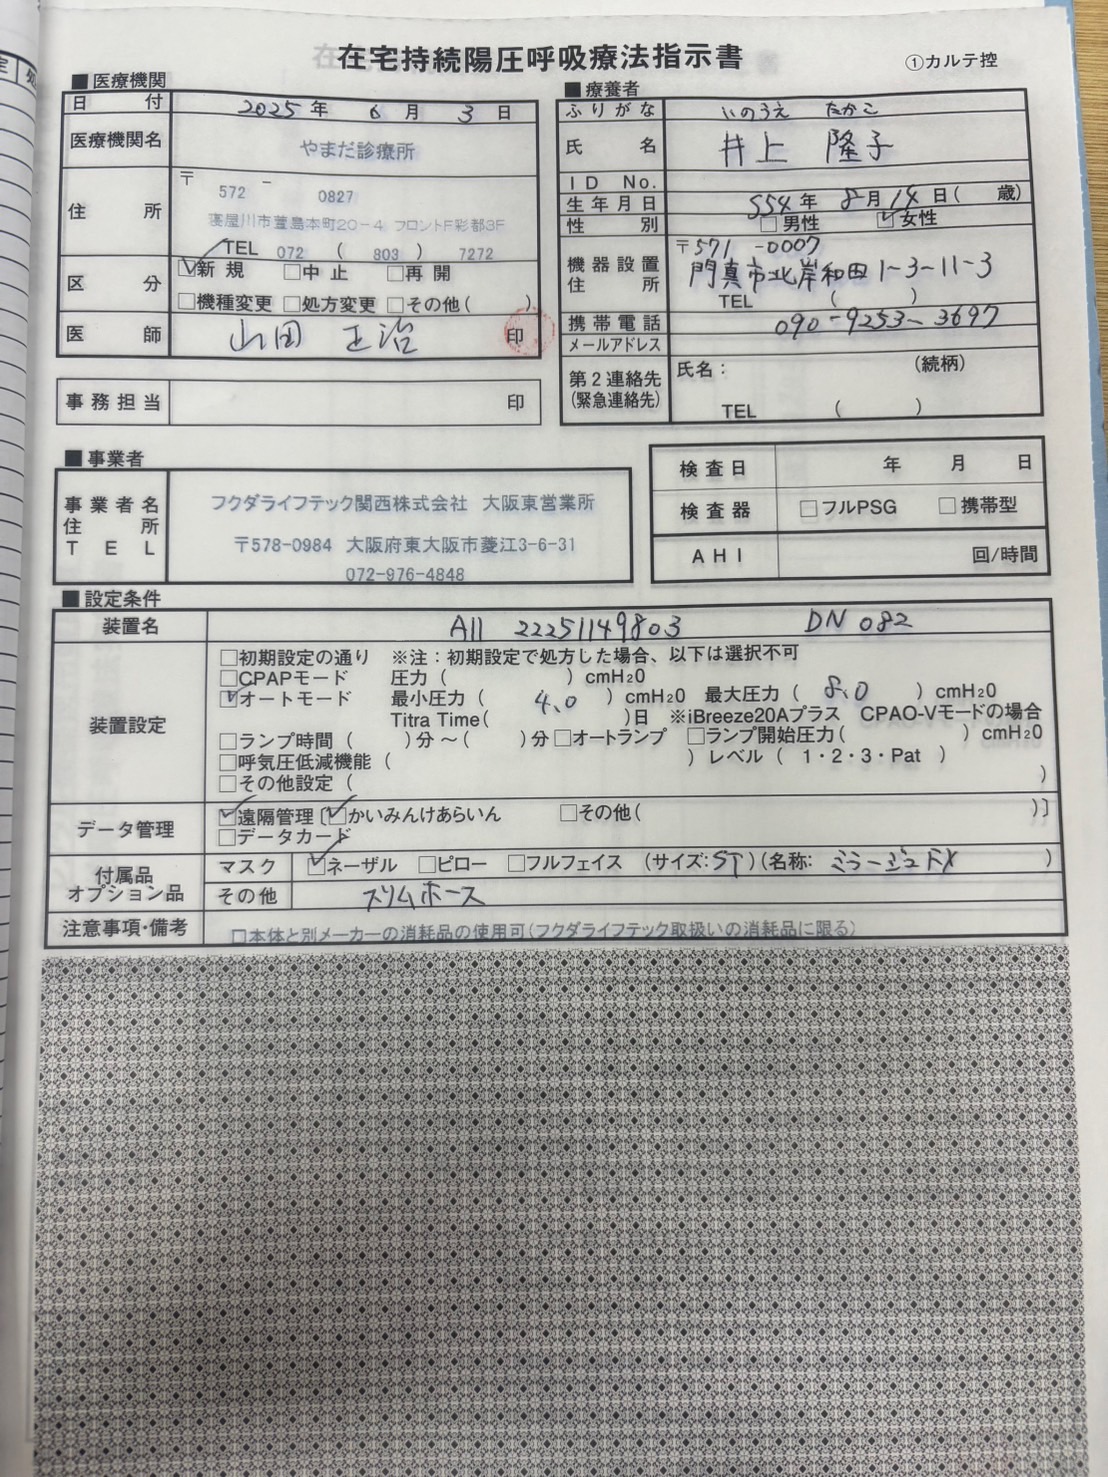 在宅持続陽圧呼吸療法指示書
①カルテ控
■医療機関
日付 2025年 6月 3日
医療機関名 やまだ診療所
住所 〒572-0827
寝屋川市萱島本町20-4 フロントF彩都3F
TEL 072 (803) 7272
区分 ☑新規 □中止 □再開
□機種変更 □処方変更 □その他( )
医師 山田 正治 印
事務担当 印
■療養者
ふりがな いのうえ たかこ
氏名 井上 隆子
ID No.
生年月日 S54年 8月 14日( 歳)
性別 □男性 ☑女性
機器設置住所 〒571-0007
門真市北岸和田1-3-11-3
TEL ( )
携帯電話 090-9253-3697
メールアドレス
第2連絡先(緊急連絡先) 氏名: (続柄)
TEL ( )
■事業者
事業者名 フクダライフテック関西株式会社 大阪東営業所
住所 〒578-0984 大阪府東大阪市菱江3-6-31
TEL 072-976-4848
検査日 年 月 日
検査器 □フルPSG □携帯型
AHI 回/時間
■設定条件
装置名 A11 22251149803 DN 082
装置設定
□初期設定の通り ※注:初期設定で処方した場合、以下は選択不可
□CPAPモード 圧力( )cmH2O
☑オートモード 最小圧力( 4.0 )cmH2O 最大圧力( 8.0 )cmH2O
Titra Time( )日 ※iBreeze20Aプラス CPAO-Vモードの場合
□ランプ時間( )分~( )分 □オートランプ □ランプ開始圧力( )cmH2O
□呼気圧低減機能( )レベル( 1・2・3・Pat )
□その他設定( )
データ管理 ☑遠隔管理〔☑かいみんけあらいん □その他( )〕
□データカード
付属品オプション品 マスク ☑ネーザル □ピロー □フルフェイス (サイズ:ST)(名称: ミラージュFX )
その他 スリムホース
注意事項・備考 □本体と別メーカーの消耗品の使用可(フクダライフテック取扱いの消耗品に限る)